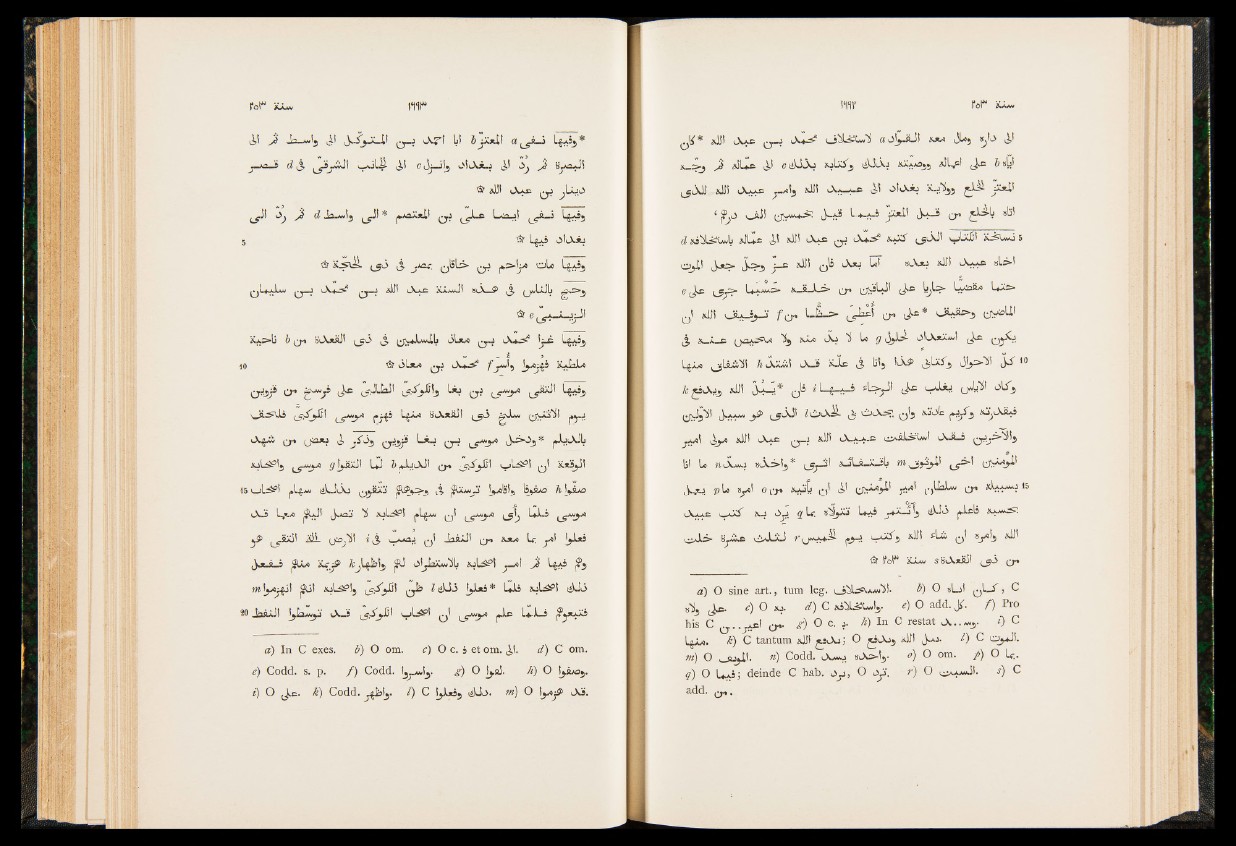 سنة ٢٥٣ ١٦٩٢
الى داره وسار معه القوّاد a لاستخلاف محمّد بن عبد الله *وكان
أيّاه b على اعماله ووصيّته بذلك وكتابه بذلك c الى عمّاله ثم وجّه
المعتزّ الخلع وولاية بغداد الى عبيد الله وامر عبيد الله للذى
اتاه بالخلع من قبل المعتزّ فيما قيل بخمسين الف درهم،
5 نسخة الكتاب الذى كتبه محمّد بن عبد الله الى عمّاله باستخلافه d
اخاه عبيد الله بعده أمّا بعد فان الله عزّ وجلّ جعل الموت
حتما مقضيّا جاريا على الباقين من خلقه حَسْبَما جرى على e
الماضين وحقيق *على من أُعْطِىَ حظّا من f توفيق الله ان
يكون على استعداد لحلول g ما لا بدّ منه ولا محيص عنه فى
10 كلّ الاحوال وكتابى هذا وانا فى علّة قد اشتدّ h الاشفاق منها
وكاد الاياس يغلب على الرجاء فيها i فان *يُبِلّ الله ويدفع k
فبقدرته وكريم عادته وان يحدث بى الحدث l الذى هو سبيل الاوّلين
والآخرين فقد استخلفت عبيد الله بن عبد الله مولى امير
المؤمنين اخى الموثوق m باقتفائه اثرى *واخذه بسدّ n ما انا
15 بسبيله من سلطان امير المؤمنين الى ان يأتيه o من امره ما p يعمل
بحسبه فاعلم ذلك وأتمر فيما تتولّاه بما q يَرِد به كتب عبيد
الله وامره ان شاء الله وكتب يوم الخميس r لثلث عشرة خلت
من ذى القعدة s سنة ٢٥٣ ۞
a) O sine art., tum leg. لاستخلاف. b) O كان اياه, C
على ولاه. c) O به. d) C واستخلافه. e) O add. كل. f) Pro
his C من اعير..ن. g) O c. ب. h) In C restat وس..د. i) C
منها. k) C tantum يدفع الله; O يبل الله ويدفع. l) C الموت.
m) O الموثق. n) Codd. واخذه بسد. o) O om. p) O بما.
q) O فيما; deinde C hab. يرد, O ترد. r) O السبت. s) C
add. من.
سنة ٢٥٣ ١٦٩٣
*وفيها نفى a المعتزّ b ابا احمد بن المتوكّل الى واسط ثم الى
البصرة ثم رُدّ الى بغداد وانزل c الى الجانب الشرقىّ فى d قصر
دينار بن عبد الله ۞
وفيها نفى ايضا علىّ بن المعتصم *الى واسط d ثم رُدّ الى
5 بغداد فيها ۞
وفيها مات مزاحم بن خاقان بمصر فى ذى الحجّة ۞
وحجّ بالناس فى هذه السنة عبد الله بن محمّد بن سليمان
الزينبىّ e ۞
وفيها غزا محمّد بن معاذ بالمسلمين فى ذى القعدة من b ناحية
10 ملطية فهُزموا وأُسر f محمّد بن معاذ ۞
وفيها التقى موسى بن بغا والكوكبىّ الطالبىّ على فرسخ من قزوين
يوم الاثنين سلخ ذى القعدة منها فهزم موسى الكوكبىّ فلحق
بالديلم *ودخل موسى بن بغا قزوين وذُكر لى بعض من شهد
الوقعة ان اصحاب الكوكبىّ من الديلم b لمّا التقوا g بموسى واصحابه
15 صفّوا h صفوفا واقاموا ترستهم فى وجوههم يتّقون بذلك سهام اصحاب
موسى فلما رأى موسى ان سهام اصحابه لا تصل اليهم مع ما قد
فعلوا امر بما معه من النفط ان يُصبّ فى i الارض التى التقى هو
وهم فيها ثم امر اصحابه بالاستطراد لهم واظهار k هزيمة منهم ففعل
ذلك اصحابه فلما *فعلوا ذلك l ظنّ الكوكبىّ واصحابه انهم انهزموا m
20 فتبعوهم فلما علم موسى ان اصحاب الكوكبىّ قد توسّطوا النفط
a) In C exes. b) O om. c) O c. ف et om. الى. d) C om.
e) Codd. s. p. f) Codd. واسروا. g) O لقوا. h) O وصفوا.
i) O على. k) Codd. واظهر. l) C وفعلوا ذلك. m) O قد هزموا.